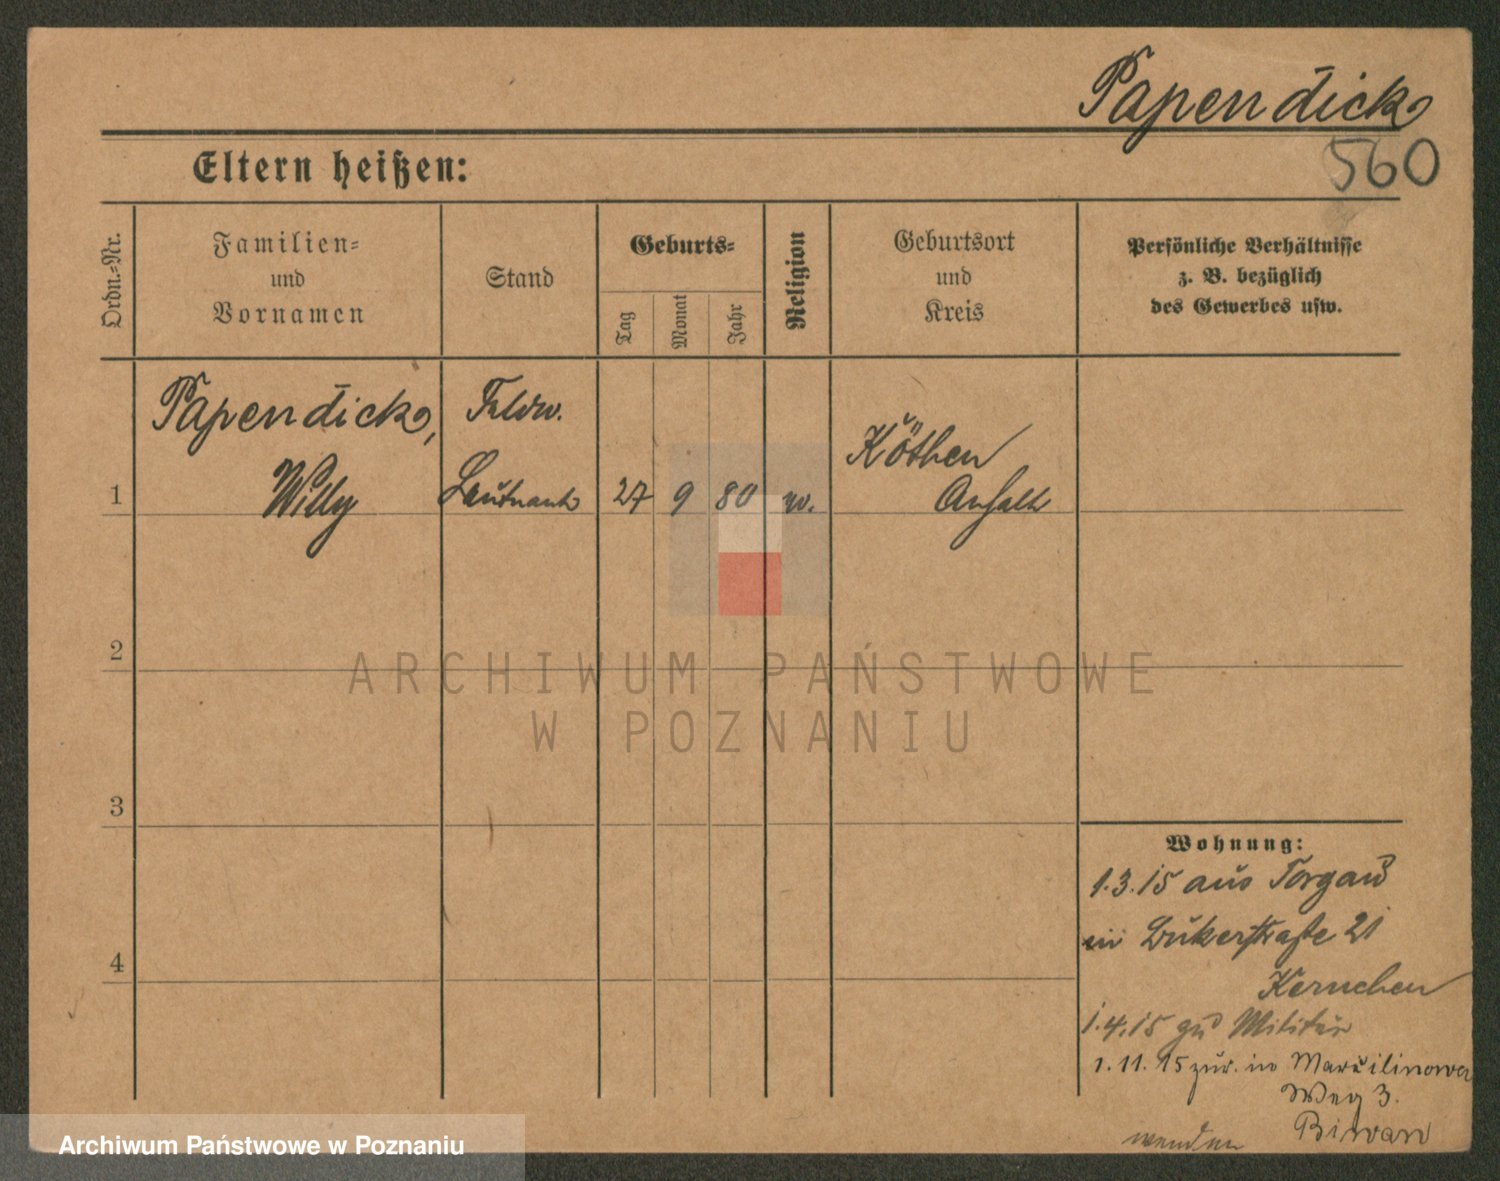 Papendick
560
Eltern heißen:
Ordn.-Nr.
Familien-
und
Vornamen
Stand
Geburts-
Tag
Monat
Jahr
Religion
Geburtsort
und
Kreis
Persönliche Verhältnisse
z. B. bezüglich
des Gewerbes usw.
1
Papendick,
Willy
Feldw.
Leutnant
27
9
80
Köthen
Anhalt
2
3
4
ARCHIWUM PAŃSTWOWE
W POZNANIU
Wohnung:
1.3.15 aus Torgau
in Bukerstraße 21
Kernchen
1.4.15 zu Militär
1.11.15 zur. in
Weg 3.
wenden
Archiwum Państwowe w Poznaniu